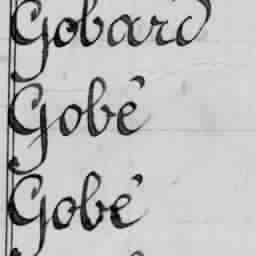 Gobard
Gobé
Gobé